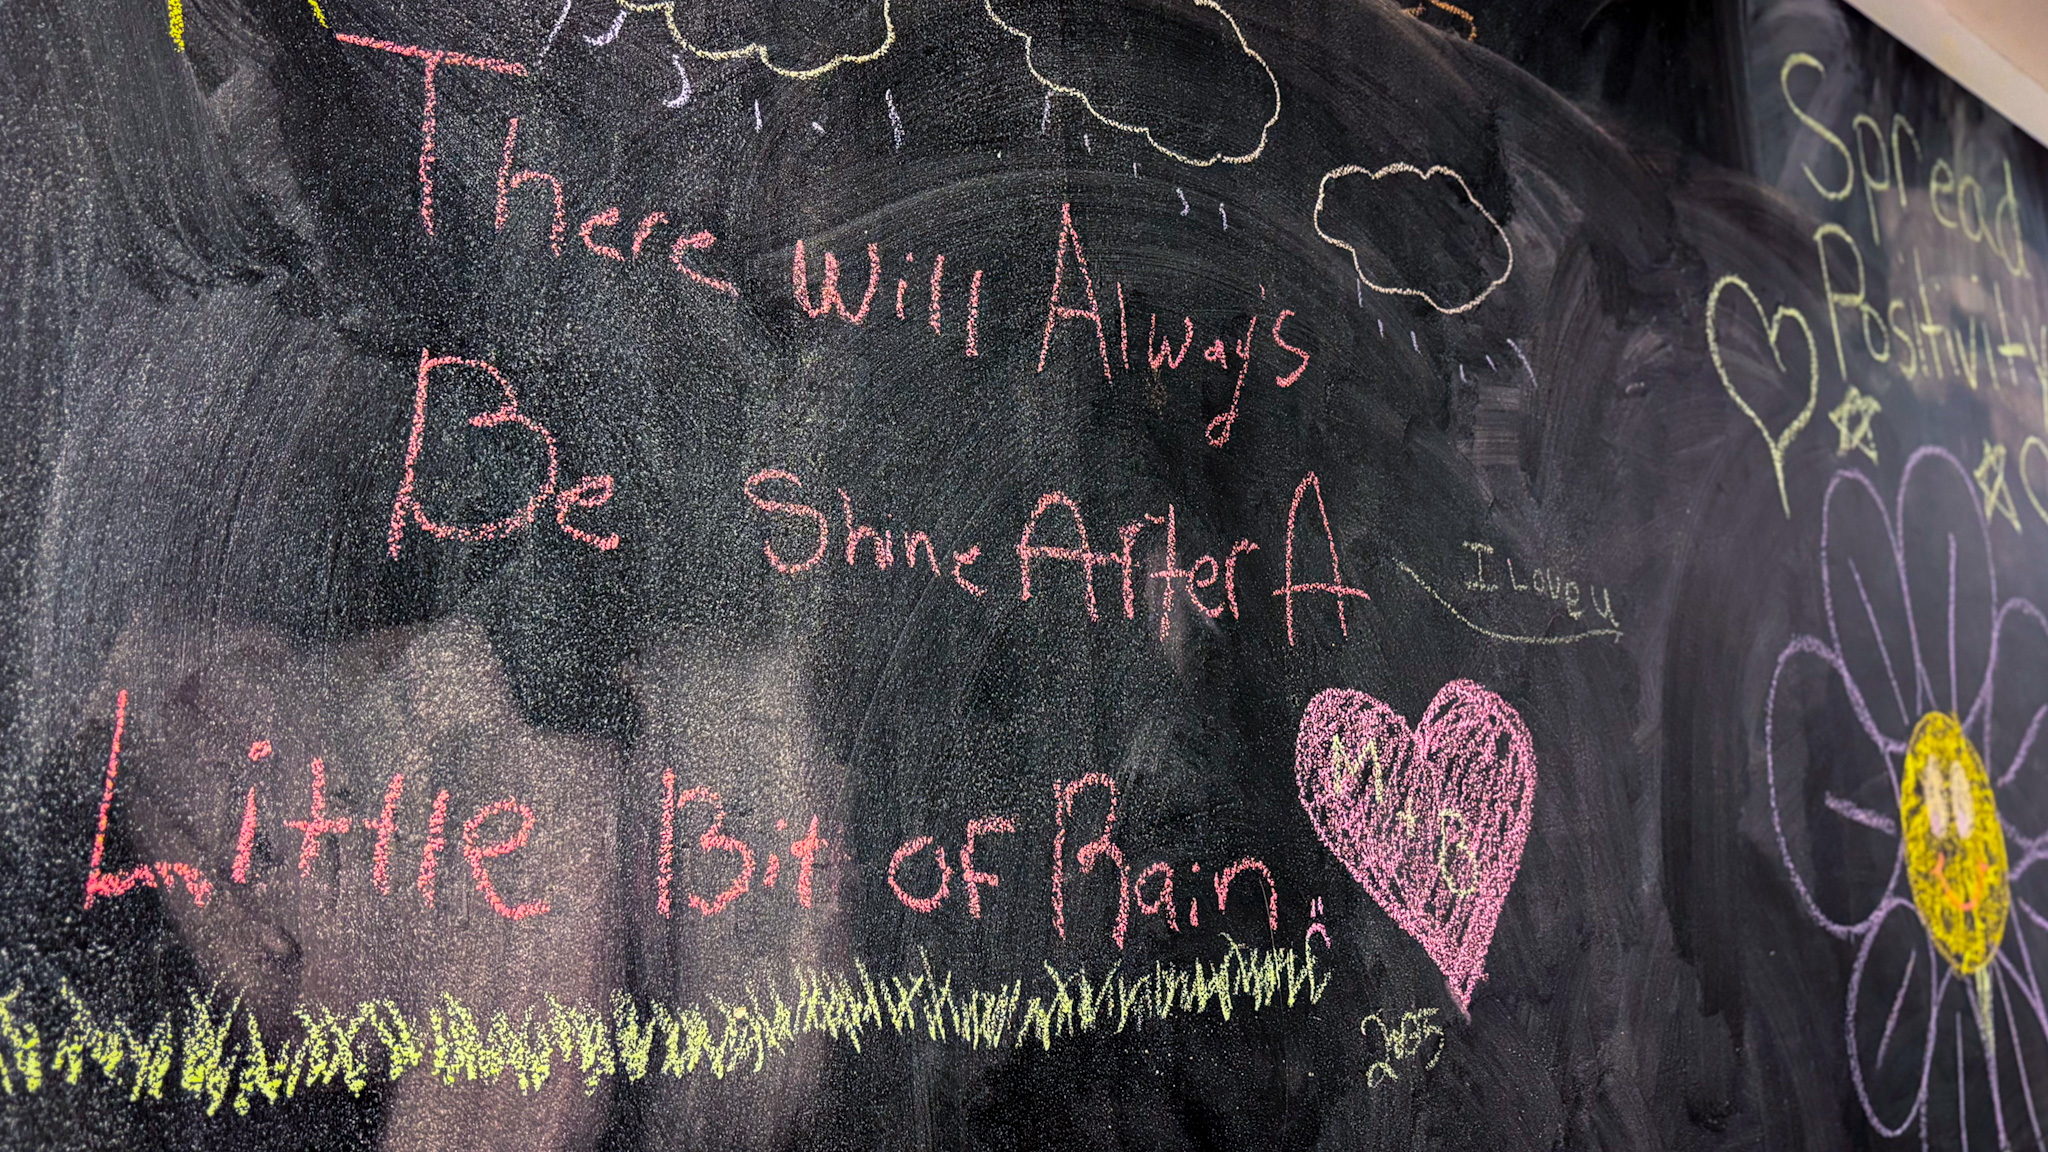 There Will Always
Be Shine After A
Little Bit of Rain
I Love u
M + B
2005
Spread
Positivity